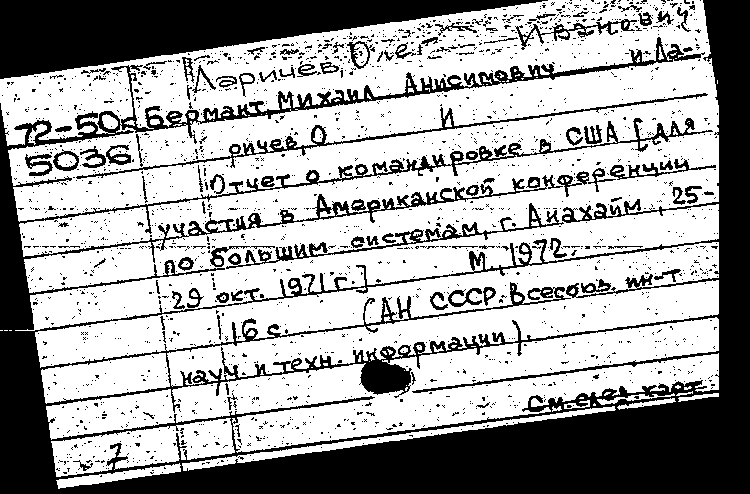 Ларичев, Олег Иванович
72-50к Бермант, Михаил Анисимович и Ла-
5036 ричев, О И
Отчет о командировке в США [для
участия в Американской конференции
по большим системам, г. Анахайм, 25-
29 окт. 1971 г.]. М., 1972.
16 с. (АН СССР. Всесоюз. ин-т
науч. и техн. информации).
См. след. карт.
7